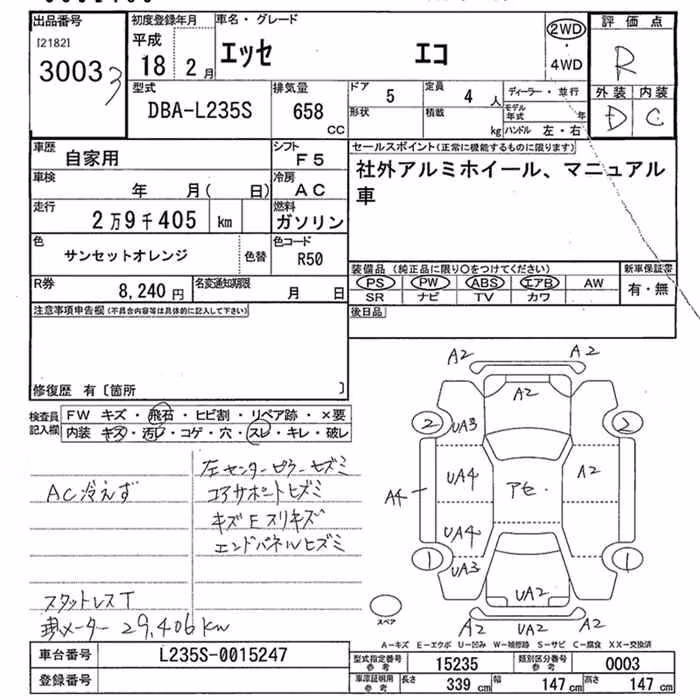 出品番号 初度登録年月 車名・グレード 評価点
[2182] 平成 エッセ エコ 2WD R
30033 18 2月 ・
4WD
型式 排気量 ドア 5 定員 4人 ディーラー・並行 外装 内装
DBA-L235S 658 CC 形状 積載 kg モデル年式 年 D C
ハンドル 左・右
車歴 自家用 シフト F5 セールスポイント(正常に機能するものに限ります)
車検 年 月( 日) 冷房 AC 社外アルミホイール、マニュアル
走行 2万9千405 km 燃料 ガソリン 車
色 サンセットオレンジ 色替 色コード R50
装備品(純正品に限り○をつけてください) 新車保証書
R券 8,240円 名変通知期限 月 日 PS PW ABS エアB AW 有・無
SR ナビ TV カワ
注意事項申告欄(不具合内容等は具体的に記入して下さい) 後日品
修復歴 有〔箇所 〕
検査員 FW キズ・飛石・ヒビ割・リペア跡・×要
記入欄 内装 キズ・汚レ・コゲ・穴・スレ・キレ・破レ
左センターピラーヒズミ
AC冷えず コアサポートヒズミ
キズEスリキズ
エンドパネルヒズミ
スタットレスT
メーター 29,406km
A2 A2
A2
2 2
UA3
UA4 アセ A2
A4
UA4
1 1
UA3
UA2
A2 UA2 A2
スペア
A=キズ E=エクボ U=凹み W=補修跡 S=サビ C=腐食 XX=交換済
車台番号 L235S-0015247 型式指定番号 参考 15235 類別区分番号 参考 0003
登録番号 車庫証明用 参考 長さ 339cm 幅 147cm 高さ 147cm